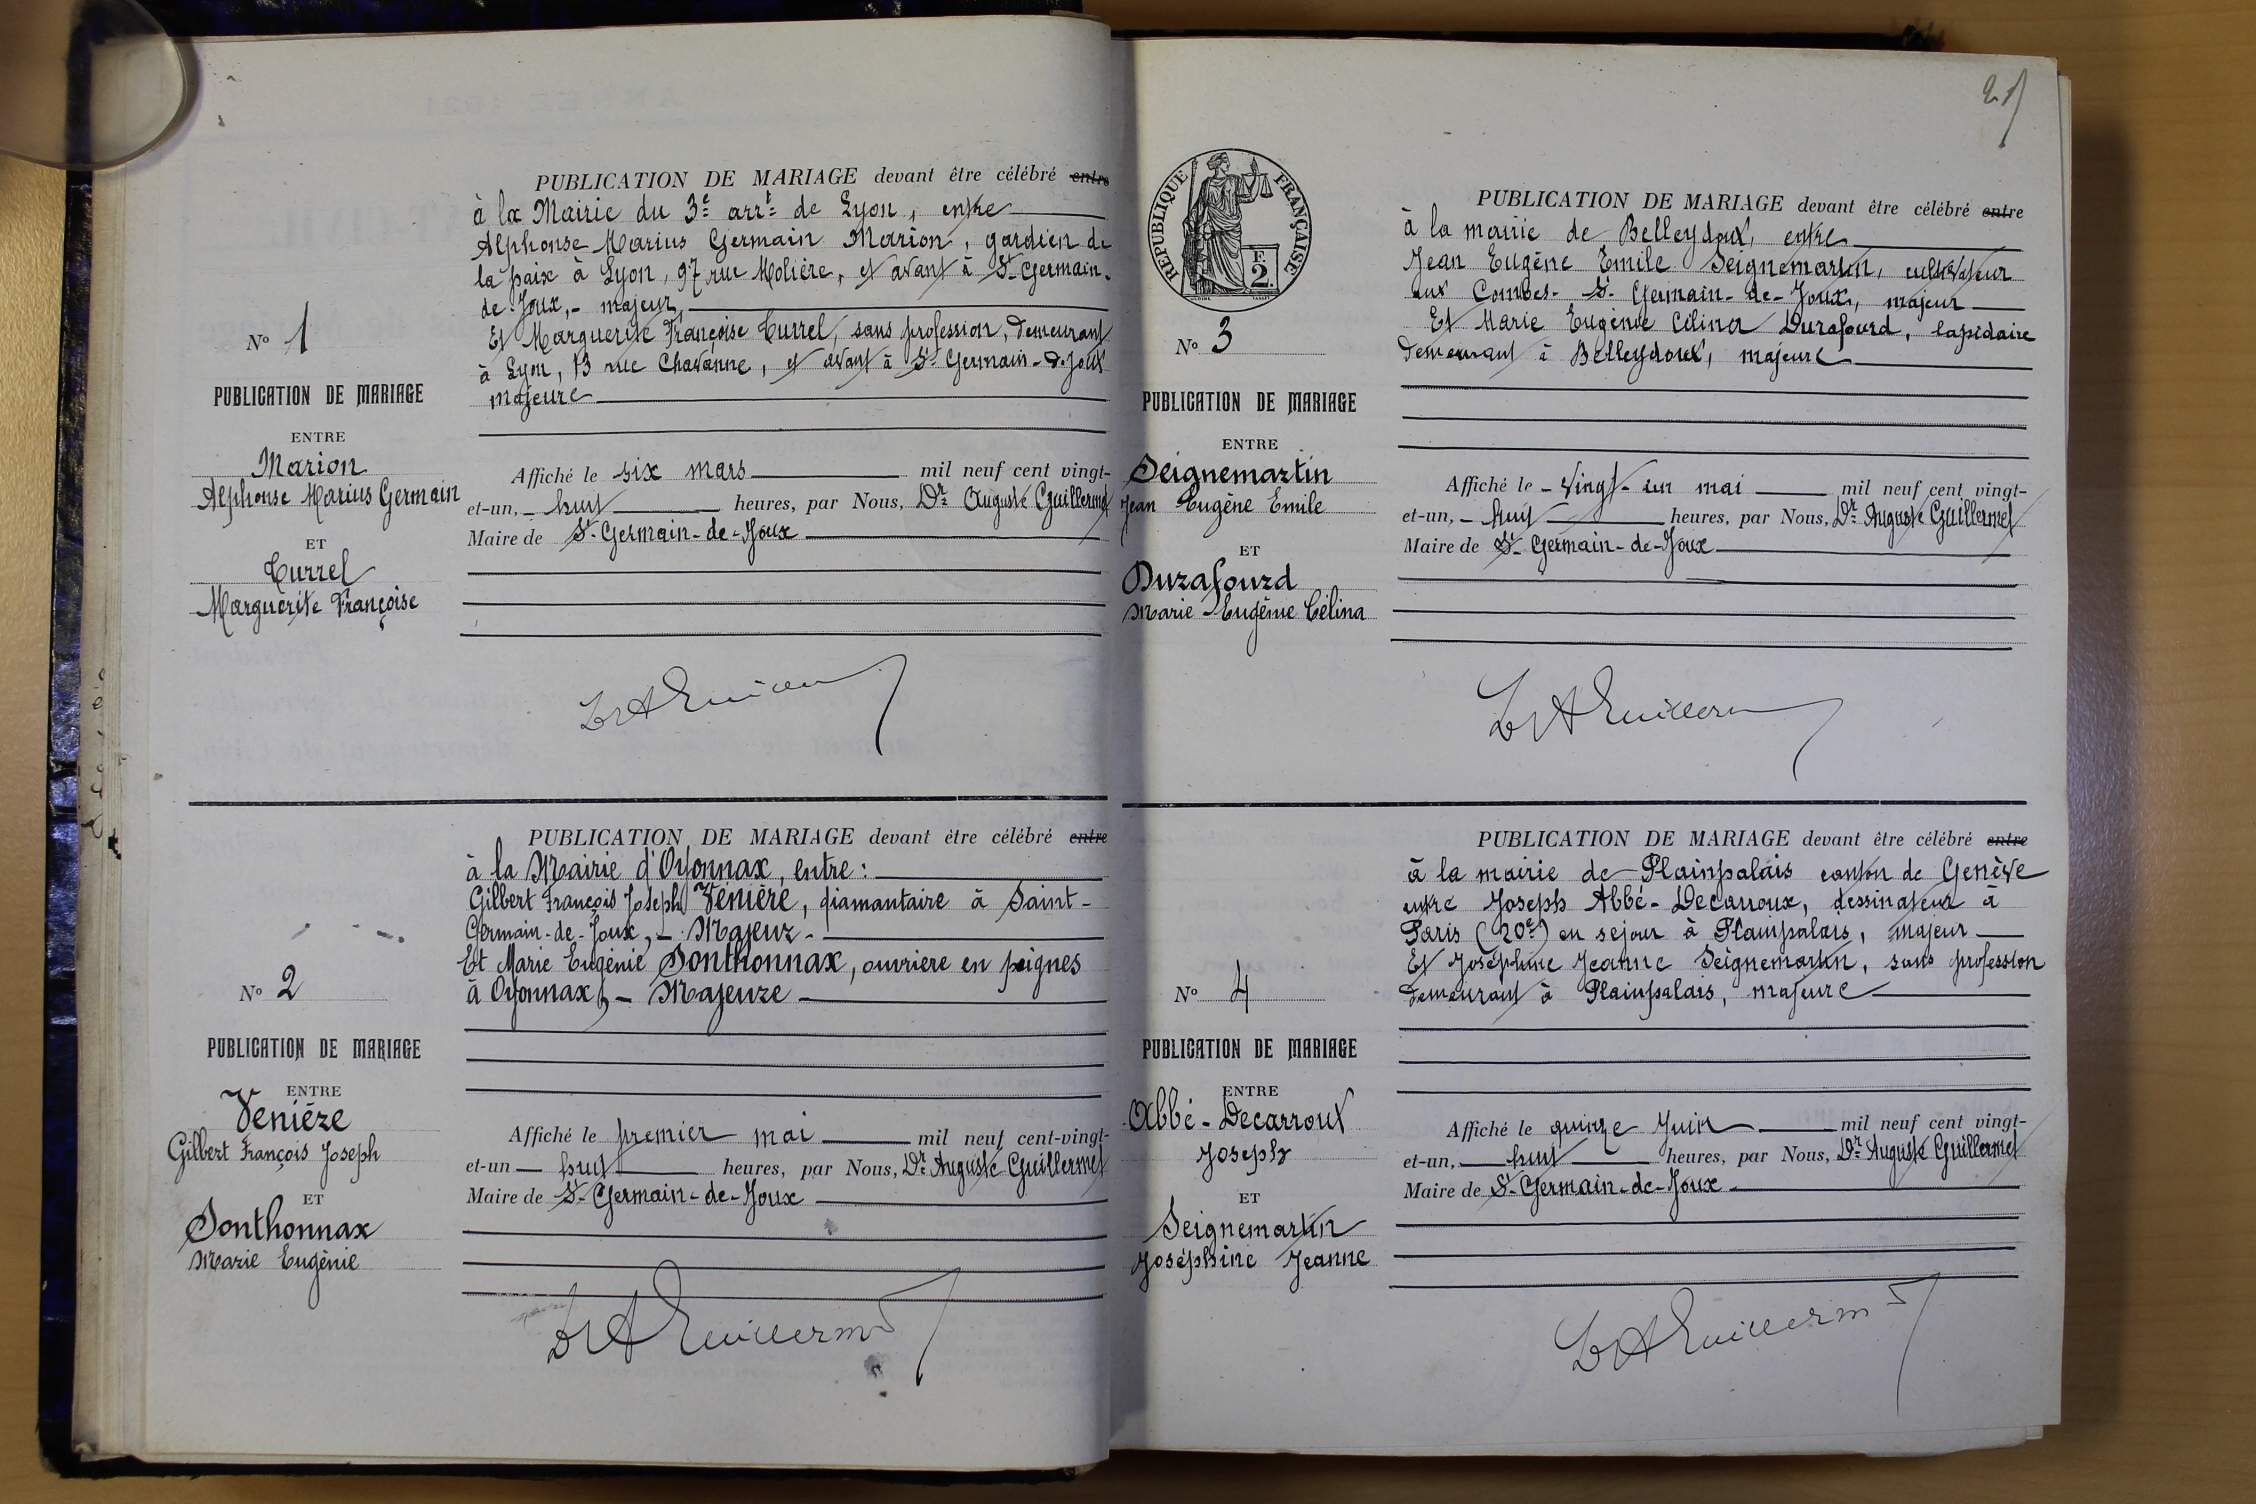 PUBLICATION DE MARIAGE devant être célébré entre
à la Mairie du 3e arrt de Lyon, entre
Alphonse Marius Germain Marion, gardien de
la paix à Lyon, 97 rue Molière, et avant à St Germain-
de-Joux,- majeur,
Et Marguerite Françoise Turrel, sans profession, demeurant
à Lyon, 13 rue Chavanne, et avant à St Germain-d-Joux
majeure
N° 1
PUBLICATION DE MARIAGE
ENTRE
Marion
Alphonse Marius Germain
ET
Turrel
Marguerite Françoise
Affiché le six mars mil neuf cent vingt-
et-un, - huit heures, par Nous, Dr Auguste Guillermet
Maire de St-Germain-de-Joux
Dr A Guillermet
PUBLICATION DE MARIAGE devant être célébré entre
à la Mairie d'Oyonnax, entre :
Gilbert François Joseph Venière, diamantaire à Saint-
Germain-de-Joux, - Majeur -
Et Marie Eugénie Sonthonnax, ouvrière en peignes
à Oyonnax, - Majeure
N° 2
PUBLICATION DE MARIAGE
ENTRE
Venière
Gilbert François Joseph
ET
Sonthonnax
Marie Eugénie
Affiché le premier mai mil neuf cent-vingt-
et-un huit heures, par Nous, Dr Auguste Guillermet
Maire de St-Germain-de-Joux
Dr A Guillermet
21
RÉPUBLIQUE FRANÇAISE
F.
2.
PUBLICATION DE MARIAGE devant être célébré entre
à la mairie de Belleydoux, entre
Jean Eugène Emile Seignemartin, cultivateur
aux Combes- St-Germain-de-Joux, majeur
Et Marie Eugénie Célina Durafourd, lapidaire
demeurant à Belleydoux, majeure
N° 3
PUBLICATION DE MARIAGE
ENTRE
Seignemartin
Jean Eugène Emile
ET
Durafourd
Marie Eugénie Célina
Affiché le - vingt-un mai mil neuf cent vingt-
et-un, - huit heures, par Nous, Dr Auguste Guillermet
Maire de St-Germain-de-Joux
Dr A Guillermet
PUBLICATION DE MARIAGE devant être célébré entre
à la mairie de Plainpalais canton de Genève
entre Joseph Abbé-Decarroux, dessinateur à
Paris (20e) en séjour à Plainpalais, majeur
Et Joséphine Jeanne Seignemartin, sans profession
demeurant à Plainpalais, majeure
N° 4
PUBLICATION DE MARIAGE
ENTRE
Abbé-Decarroux
Joseph
ET
Seignemartin
Joséphine Jeanne
Affiché le quinze Juin mil neuf cent vingt-
et-un, huit heures, par Nous, Dr Auguste Guillermet
Maire de St-Germain-de-Joux
Dr A Guillermet